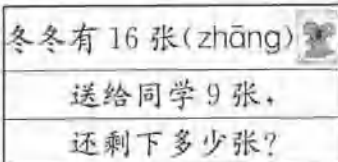 冬冬有16张(zhāng)
送给同学9张,
还剩下多少张?